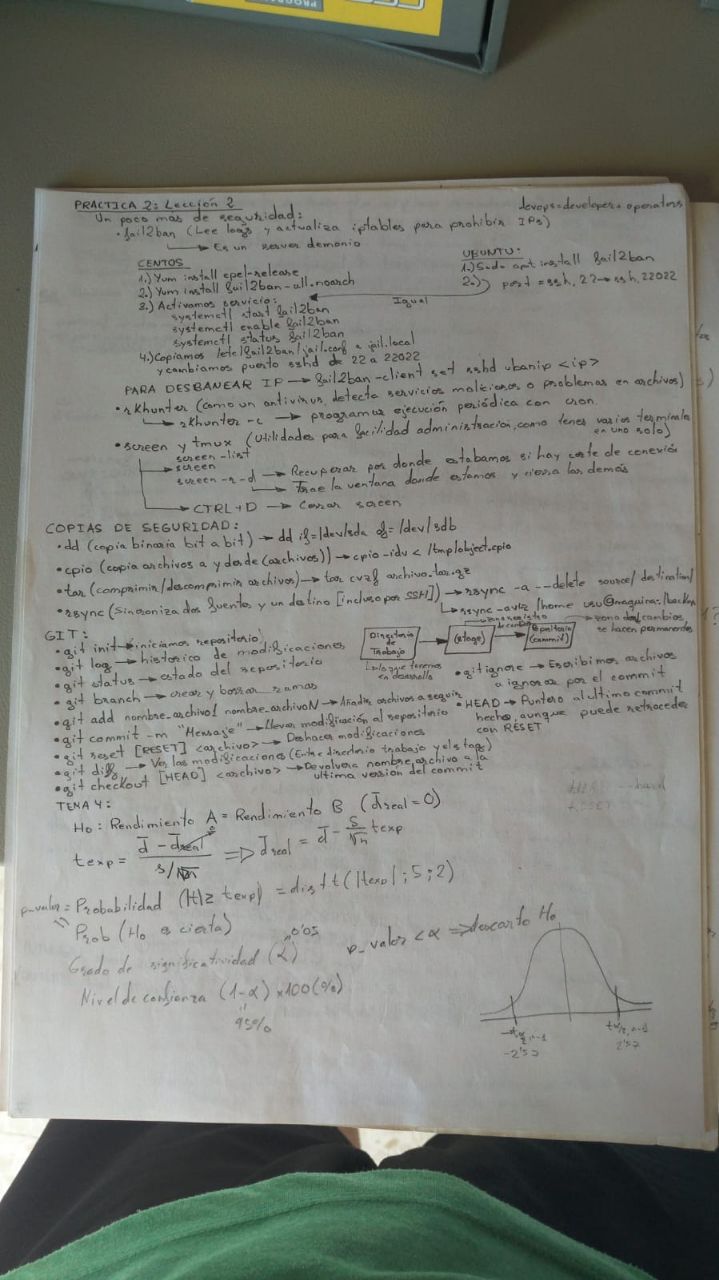 PRACTICA 2: Lección 2
devops=developer+operators
Un poco mas de seguridad:
• fail2ban (Lee logs y actualiza iptables para prohibir IPs)
Es un server demonio
CENTOS
1.) Yum install epel-release
2.) Yum install fail2ban-all.noarch
3.) Activamos servicio:
systemctl start fail2ban
systemctl enable fail2ban
systemctl status fail2ban
4.) Copiamos /etc/fail2ban/jail.conf a jail.local
y cambiamos puerto sshd de 22 a 22022
UBUNTU:
1.) Sudo apt install fail2ban
2.) port = ssh, 22 → ssh, 22022
Igual
PARA DESBANEAR IP → fail2ban-client set sshd ubanip <ip>
• rkhunter (como un antivirus, detecta servicios maliciosos o problemas en archivos)
rkhunter -c → programar ejecución periódica con cron.
• screen y tmux (Utilidades para facilidad administración, como tener varios terminales en uno solo)
screen -list
screen
screen -r -d → Recuperar por donde estabamos si hay corte de conexión
→ Trae la ventana donde estamos y cierra las demás
CTRL+D → Cerrar screen
COPIAS DE SEGURIDAD:
• dd (copia binaria bit a bit) → dd if=/dev/sda of=/dev/sdb
• cpio (copia archivos a y desde (archivos)) → cpio -idv < /tmp/object.cpio
• tar (comprimir/descomprimir archivos) → tar cvzf archivo.tar.gz
• rsync (Sincroniza dos fuentes y un destino [incluso por SSH]) → rsync -a --delete source/ destination/
→ rsync -aviz /home usu@maquina:/backup
GIT:
• git init → iniciamos repositorio
• git log → historico de modificaciones
• git status → estado del repositorio
• git branch → crear y borrar ramas
• git add nombre_archivo1 nombre_archivoN → Añadir archivos a seguir
• git commit -m "Mensaje" → Llevar modificación al repositorio
• git reset [RESET] <archivo> → Deshacer modificaciones
• git diff → Ver las modificaciones (Entre directorio trabajo y el stage)
• git checkout [HEAD] <archivo> → Devolvera nombre_archivo a la
ultima version del commit
Directorio de Trabajo
Lo que tenemos en desarrollo
(stage)
Repositorio (commit)
zona del cambios
se hacen permanentes
• gitignore → Escribimos archivos
a ignorar por el commit
• HEAD → Puntero al ultimo commit
hecho, aunque puede retroceder
con RESET
TEMA 4:
H₀: Rendimiento A = Rendimiento B (d̄real = 0)
texp = (d̄ - d̄real) / (s/√n) ⇒ d̄real = d̄ - s/√n texp
p-valor = Probabilidad (|t| ≥ texp) = dist t(|texp|; 5; 2)
Prob (H₀ es cierta)
p-valor < α ⇒ descarto H₀
Grado de significatividad (α) 0'05
Nivel de confianza (1-α) × 100 (%)
95%
-tα/2, n-1
-2'57
tα/2, n-1
2'57